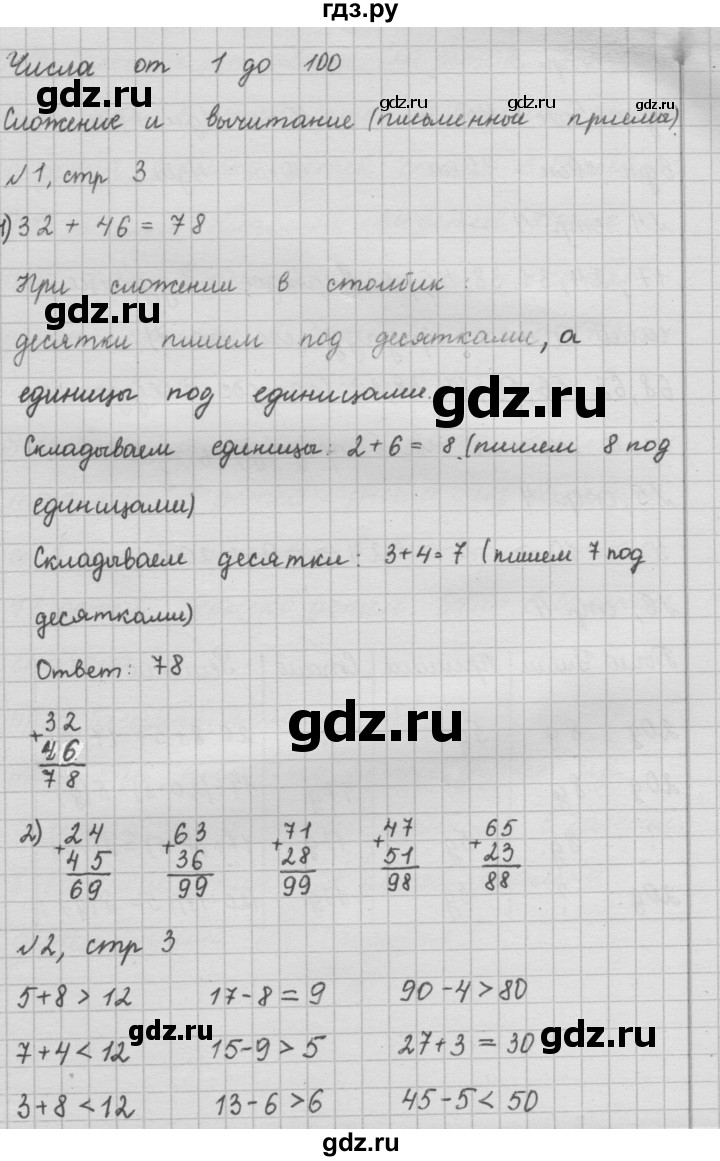 гдз.ру
Числа от 1 до 100
gdz.ru
gdz.ru gdz.ru gdz.ru
Сложение и вычитание (письменные приёмы)
№1, стр 3
1) 32 + 46 = 78
При сложении в столбик:
gdz.ru
десятки пишем под десятками, а
единицы под единицами.
gdz.ru
Складываем единицы: 2+6 = 8 (пишем 8 под
единицами)
Складываем десятки: 3+4=7 (пишем 7 под
десятками)
Ответ: 78
gdz.ru
+32
46
78
2) +24 +63 +71 +47 +65
45 36 28 51 23
69 99 99 98 88
№2, стр 3
gdz.ru
5+8 > 12 17-8 = 9 90-4 > 80
gdz.ru gdz.ru gdz.ru
7+4 < 12 15-9 > 5 27+3 = 30
3+8 < 12 13-6 > 6 45-5 < 50
gdz.ru